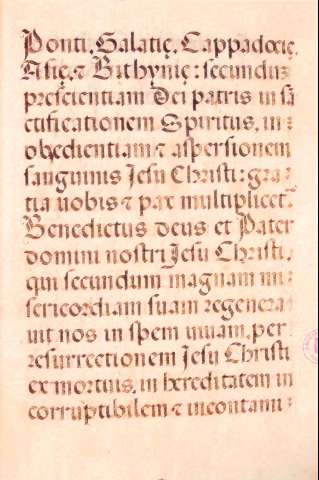 Ponti, Galatię, Cappadocię,
Asię, ⁊ Bithynię: secundũ
prescientiam Dei patris in sã
ctificationem Spiritus, in :
obedientiam ⁊ aspersionem
sanguinis Jesu Christi: gra :
tia uobis ⁊ pax multiplicet.
Benedictus deus et Pater
domini nostri Jesu Christi,
qui secundum magnam mi :
sericordiam suam regenera
uit nos in spem uiuam, per
resurrectionem Jesu Christi
ex mortuis, in hereditatem in
corruptibilem ⁊ incontami :